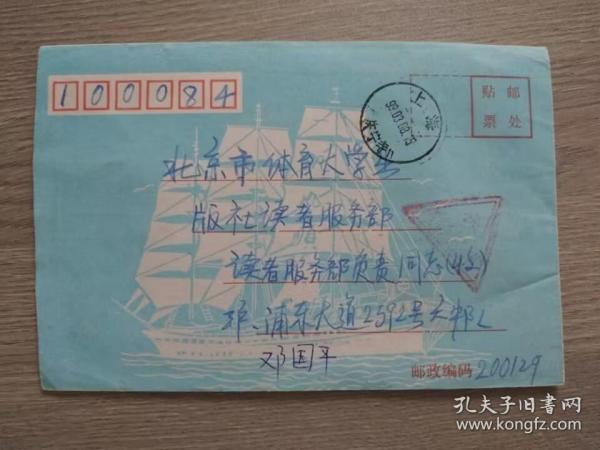 100084
贴邮
票处
上海
北京市体育大学出
版社读者服务部
读者服务部负责同志(收)
浦东大道2592号
邓国平
邮政编码200129
孔夫子旧书网
www.kongfz.com